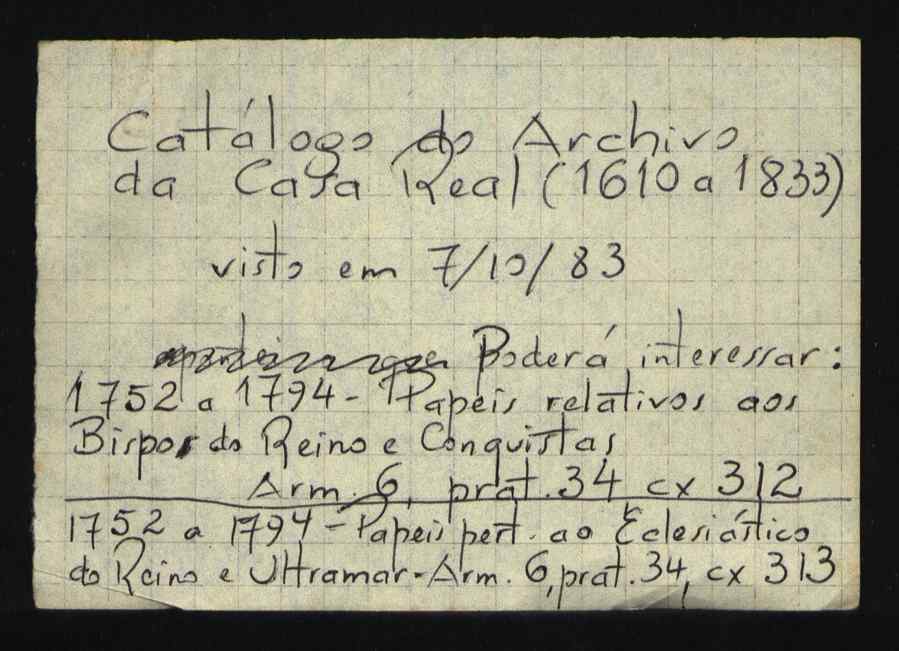 Catálogo do Archivo
da Casa Real (1610 a 1833)
visto em 7/10/83
Poderá interessar:
1752 a 1794 - Papeis relativos aos
Bispos do Reino e Conquistas
Arm. 6, prat. 34 cx 312
1752 a 1794 - Papeis pert. ao Eclesiástico
do Reino e Ultramar - Arm. 6, prat. 34, cx 313